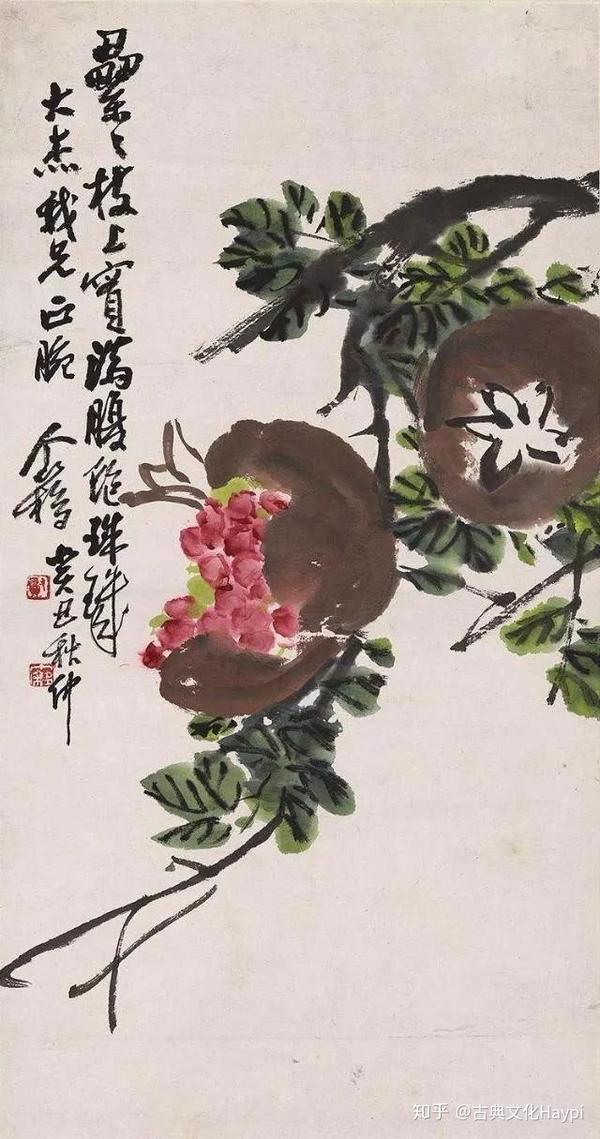 纍々枝上實滿腹飽珠璣
大杰我兄正腕
个簃
癸丑秋仲
知乎 @古典文化Haypi